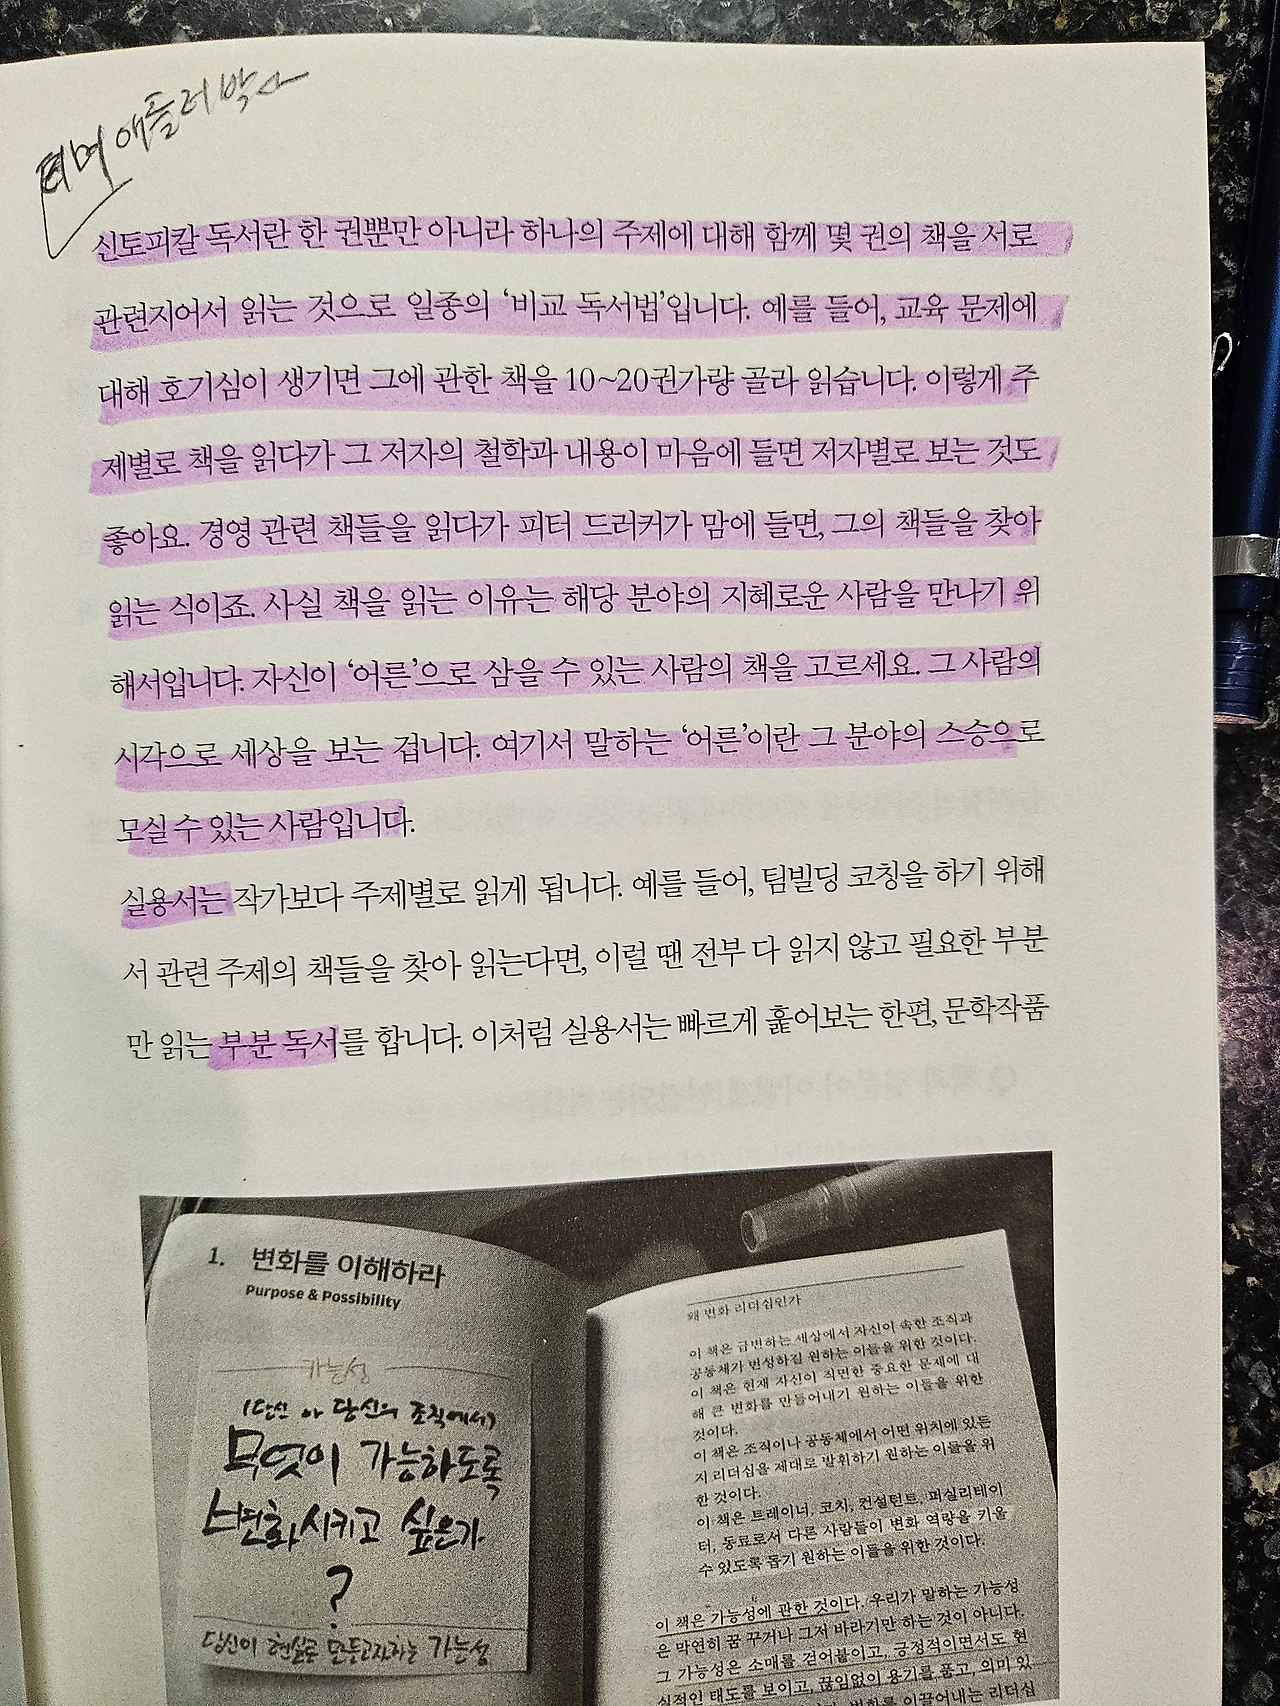 애들러 박사
신토피칼 독서란 한 권뿐만 아니라 하나의 주제에 대해 함께 몇 권의 책을 서로
관련지어서 읽는 것으로 일종의 ‘비교 독서법’입니다. 예를 들어, 교육 문제에
대해 호기심이 생기면 그에 관한 책을 10~20권가량 골라 읽습니다. 이렇게 주
제별로 책을 읽다가 그 저자의 철학과 내용이 마음에 들면 저자별로 보는 것도
좋아요. 경영 관련 책들을 읽다가 피터 드러커가 맘에 들면, 그의 책들을 찾아
읽는 식이죠. 사실 책을 읽는 이유는 해당 분야의 지혜로운 사람을 만나기 위
해서입니다. 자신이 ‘어른’으로 삼을 수 있는 사람의 책을 고르세요. 그 사람의
시각으로 세상을 보는 겁니다. 여기서 말하는 ‘어른’이란 그 분야의 스승으로
모실 수 있는 사람입니다.
실용서는 작가보다 주제별로 읽게 됩니다. 예를 들어, 팀빌딩 코칭을 하기 위해
서 관련 주제의 책들을 찾아 읽는다면, 이럴 땐 전부 다 읽지 않고 필요한 부분
만 읽는 부분 독서를 합니다. 이처럼 실용서는 빠르게 훑어보는 한편, 문학작품
1. 변화를 이해하라
Purpose & Possibility
가능성
(당신 or 당신의 조직에서)
무엇이 가능하도록
변화시키고 싶은가
?
당신이 현실로 만들고자하는 가능성
왜 변화 리더십인가
이 책은 급변하는 세상에서 자신이 속한 조직과
공동체가 번성하길 원하는 이들을 위한 것이다.
이 책은 현재 자신이 직면한 중요한 문제에 대
해 큰 변화를 만들어내기 원하는 이들을 위한
것이다.
이 책은 조직이나 공동체에서 어떤 위치에 있든
지 리더십을 제대로 발휘하기 원하는 이들을 위
한 것이다.
이 책은 트레이너, 코치, 컨설턴트, 퍼실리테이
터, 동료로서 다른 사람들이 변화 역량을 키울
수 있도록 돕기 원하는 이들을 위한 것이다.
이 책은 가능성에 관한 것이다. 우리가 말하는 가능성
은 막연히 꿈 꾸거나 그저 바라기만 하는 것이 아니다.
그 가능성은 소매를 걷어붙이고, 긍정적이면서도 현
실적인 태도를 보이고, 끊임없이 용기를 품고, 의미 있
변화를 이끌어내는 리더십